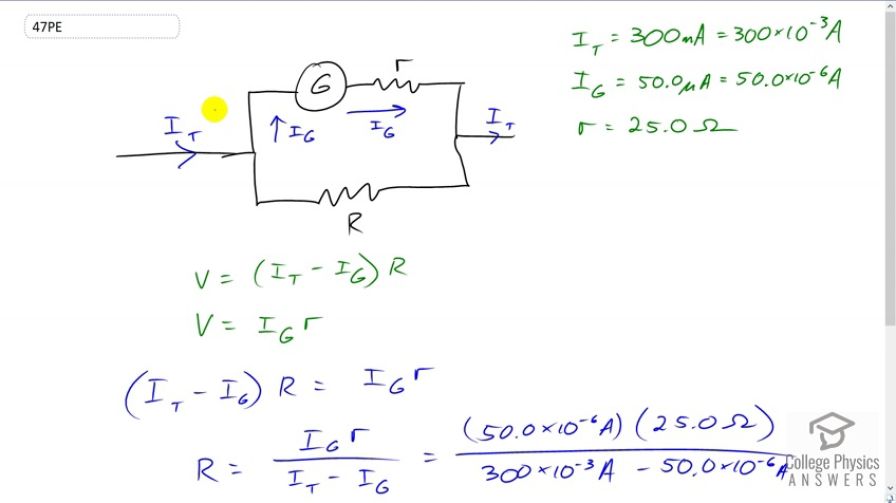 47PE
I_T = 300mA = 300×10⁻³A
I_G = 50.0μA = 50.0×10⁻⁶A
r = 25.0 Ω
G
r
I_T
I_G
I_G
I_T
R
V = (I_T - I_G) R
V = I_G r
(I_T - I_G) R = I_G r
R = I_G r / (I_T - I_G) = (50.0×10⁻⁶A)(25.0Ω) / (300×10⁻³A - 50.0×10⁻⁶A
College Physics
ANSWERS